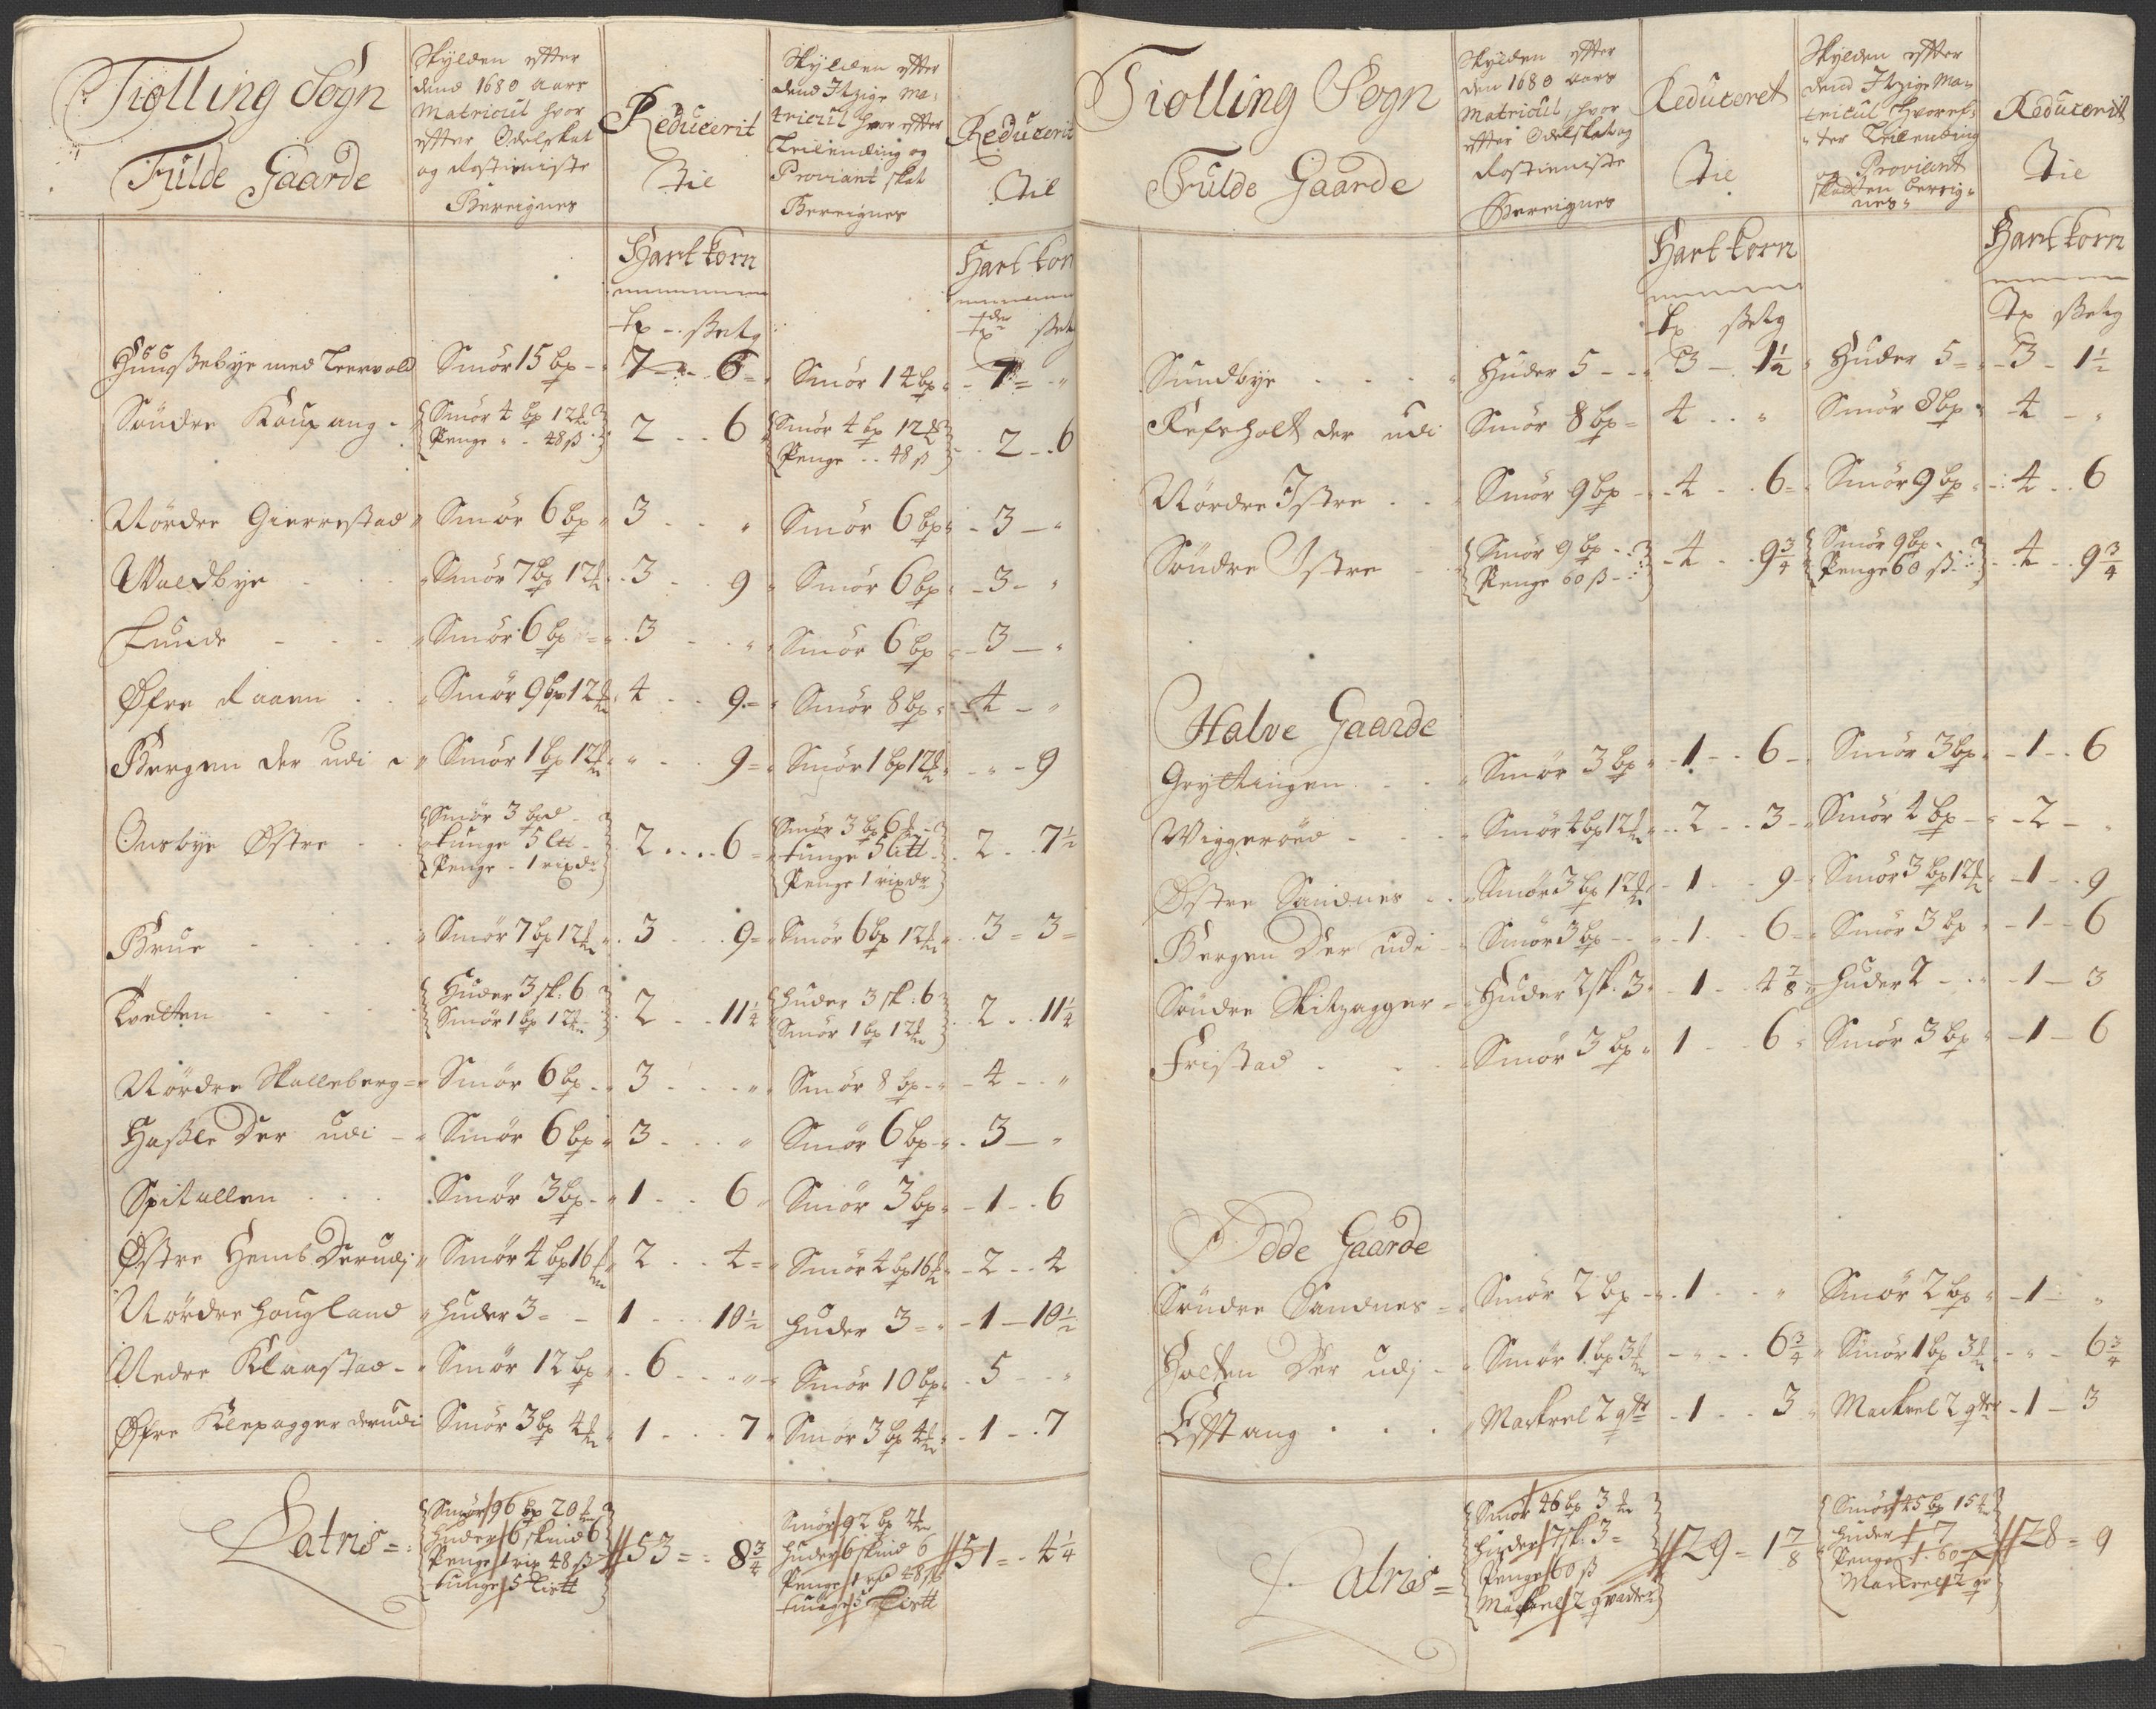 Tiølling Sogn
Fulde Gaarde
Skylden effter
dend 1680 Aars
Matricul hvor
effter Odelskat
og Rostieniste
Bereignes
Reducerit
til
Skylden effter
dend Itzige Ma-
tricul hvor effter
Leilending og
Proviant skat
Bereignes
Reducerit
til
Hartkorn
Hartkorn
Huusebye med Leervold Smør 15 bp 7 - 6 Smør 14 bp 7 "
Søndre Kaupang Smør 4 bp 12 2 - 6 Smør 4 bp 12 2 - 6
Penge 48 ß Penge 48 ß
Nordre Gierrestad Smør 6 bp 3 " Smør 6 bp 3 "
Waldbye Smør 7 bp 12 3 - 9 Smør 6 bp 3 "
Lunde Smør 6 bp 3 " Smør 6 bp 3 "
Øfre Raaen Smør 9 bp 12 4 - 9 Smør 8 bp 4 "
Bergen der udi Smør 1 bp 12 " - 9 Smør 1 bp 12 " - 9
Onsbye Østre Smør 3 bp 2 - 6 Smør 3 bp 6 2 - 7½
tunge 5 tunge 5
Penge 1 rixdr Penge 1 rixdr
Brue Smør 7 bp 12 3 - 9 Smør 6 bp 12 3 - 3
Tvetten Huder 3 sk: 6 2 - 11¼ huder 3 sk: 6 2 - 11¼
Smør 1 bp 12 Smør 1 bp 12
Nordre Skalleberg Smør 6 bp 3 " Smør 8 bp 4 "
Haßle Der udi Smør 6 bp 3 " Smør 6 bp 3 "
Spitallen Smør 3 bp 1 - 6 Smør 3 bp 1 - 6
Østre Hemb Derudj Smør 4 bp 16 2 - 4 Smør 4 bp 16 2 - 4
Nordre hougland huder 3 1 - 10½ huder 3 1 - 10½
Nedre Klaastad Smør 12 bp 6 " Smør 10 bp 5 "
Øfre Klepagger derudi Smør 3 bp 4 1 - 7 Smør 3 bp 4 1 - 7
Latris Smør 96 bp 20 53 - 8¾ Smør 92 bp 2 51 - 4¼
Huder 6 skind 6 huder 6 skind 6
Penge 1 rix 48 ß Penge 1 48 ß
tunge 5 tunge 5
Tiølling Sogn
Fulde Gaarde
Skylden effter
den 1680 Aars
Matricul hvor
effter Odelskat og
Rostieniste
Bereignes
Reduceret
til
Skylden effter
dend Itzige Ma-
tricul hvoref-
ter Leilending
og Proviant
skatten bereig-
nes
Reducerit
til
Hartkorn
Hartkorn
Sundbye Huder 5 3 - 1½ Huder 5 3 - 1½
Refsholt der udi Smør 8 bp 4 " Smør 8 bp 4 "
Nordre Istre Smør 9 bp 4 - 6 Smør 9 bp 4 - 6
Søndre Istre Smør 9 bp 4 - 9¾ Smør 9 bp 4 - 9¾
Penge 60 ß Penge 60 ß
Halve Gaarde
Gryttingen Smør 3 bp 1 - 6 Smør 3 bp 1 - 6
Wiggerød Smør 4 bp 12 2 - 3 Smør 4 bp 2 "
Østre Sandnes Smør 3 bp 12 1 - 9 Smør 3 bp 12 1 - 9
Bergen Der udi Smør 3 bp 1 - 6 Smør 3 bp 1 - 6
Søndre Skitzagger Huder 2 sk: 3 1 - 4⅞ huder 2 1 - 3
Fristad Smør 3 bp 1 - 6 Smør 3 bp 1 - 6
Øde Gaarde
Søndre Sandnes Smør 2 bp 1 " Smør 2 bp 1 "
Holten Der udj Smør 1 bp 3 " - 6¾ Smør 1 bp 3 " - 6¾
Efftang Mackrel 2 1 - 3 Mackrel 2 1 - 3
Latris Smør 46 bp 3 29 - 1⅞ Smør 45 bp 15 28 - 9
huder 7 sk: 3 huder 7
Penge 60 ß Penge 60
Mackrel 2 Mackrel 2